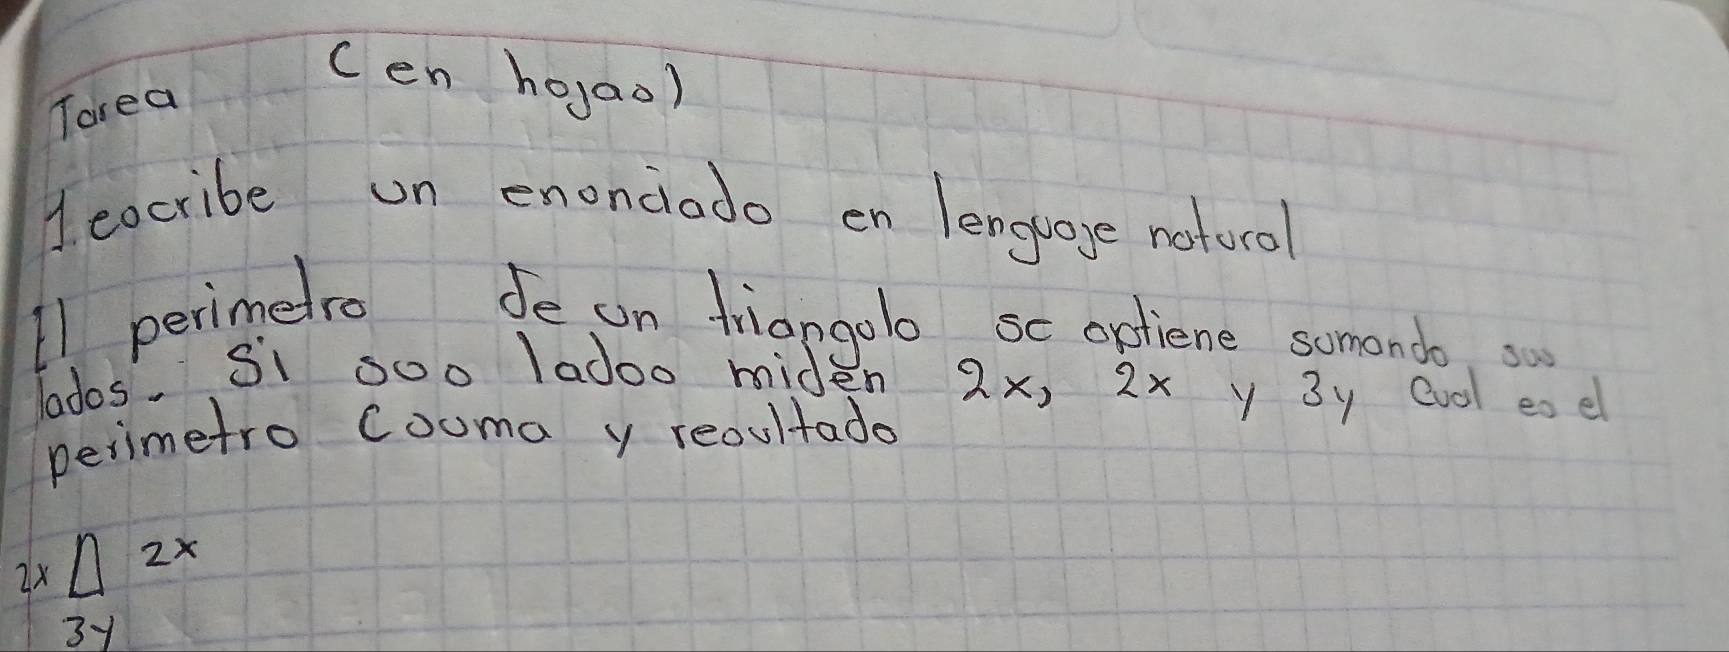 (en hojas)
Tarea
1. escribe un enunciado en lenguaje natural
El perimetro de un triangulo se optiene sumando sus
lados. Si sus lados miden 2x, 2x y 3y Cual es el
perimetro Csuma y resultado
2x 2x
3y